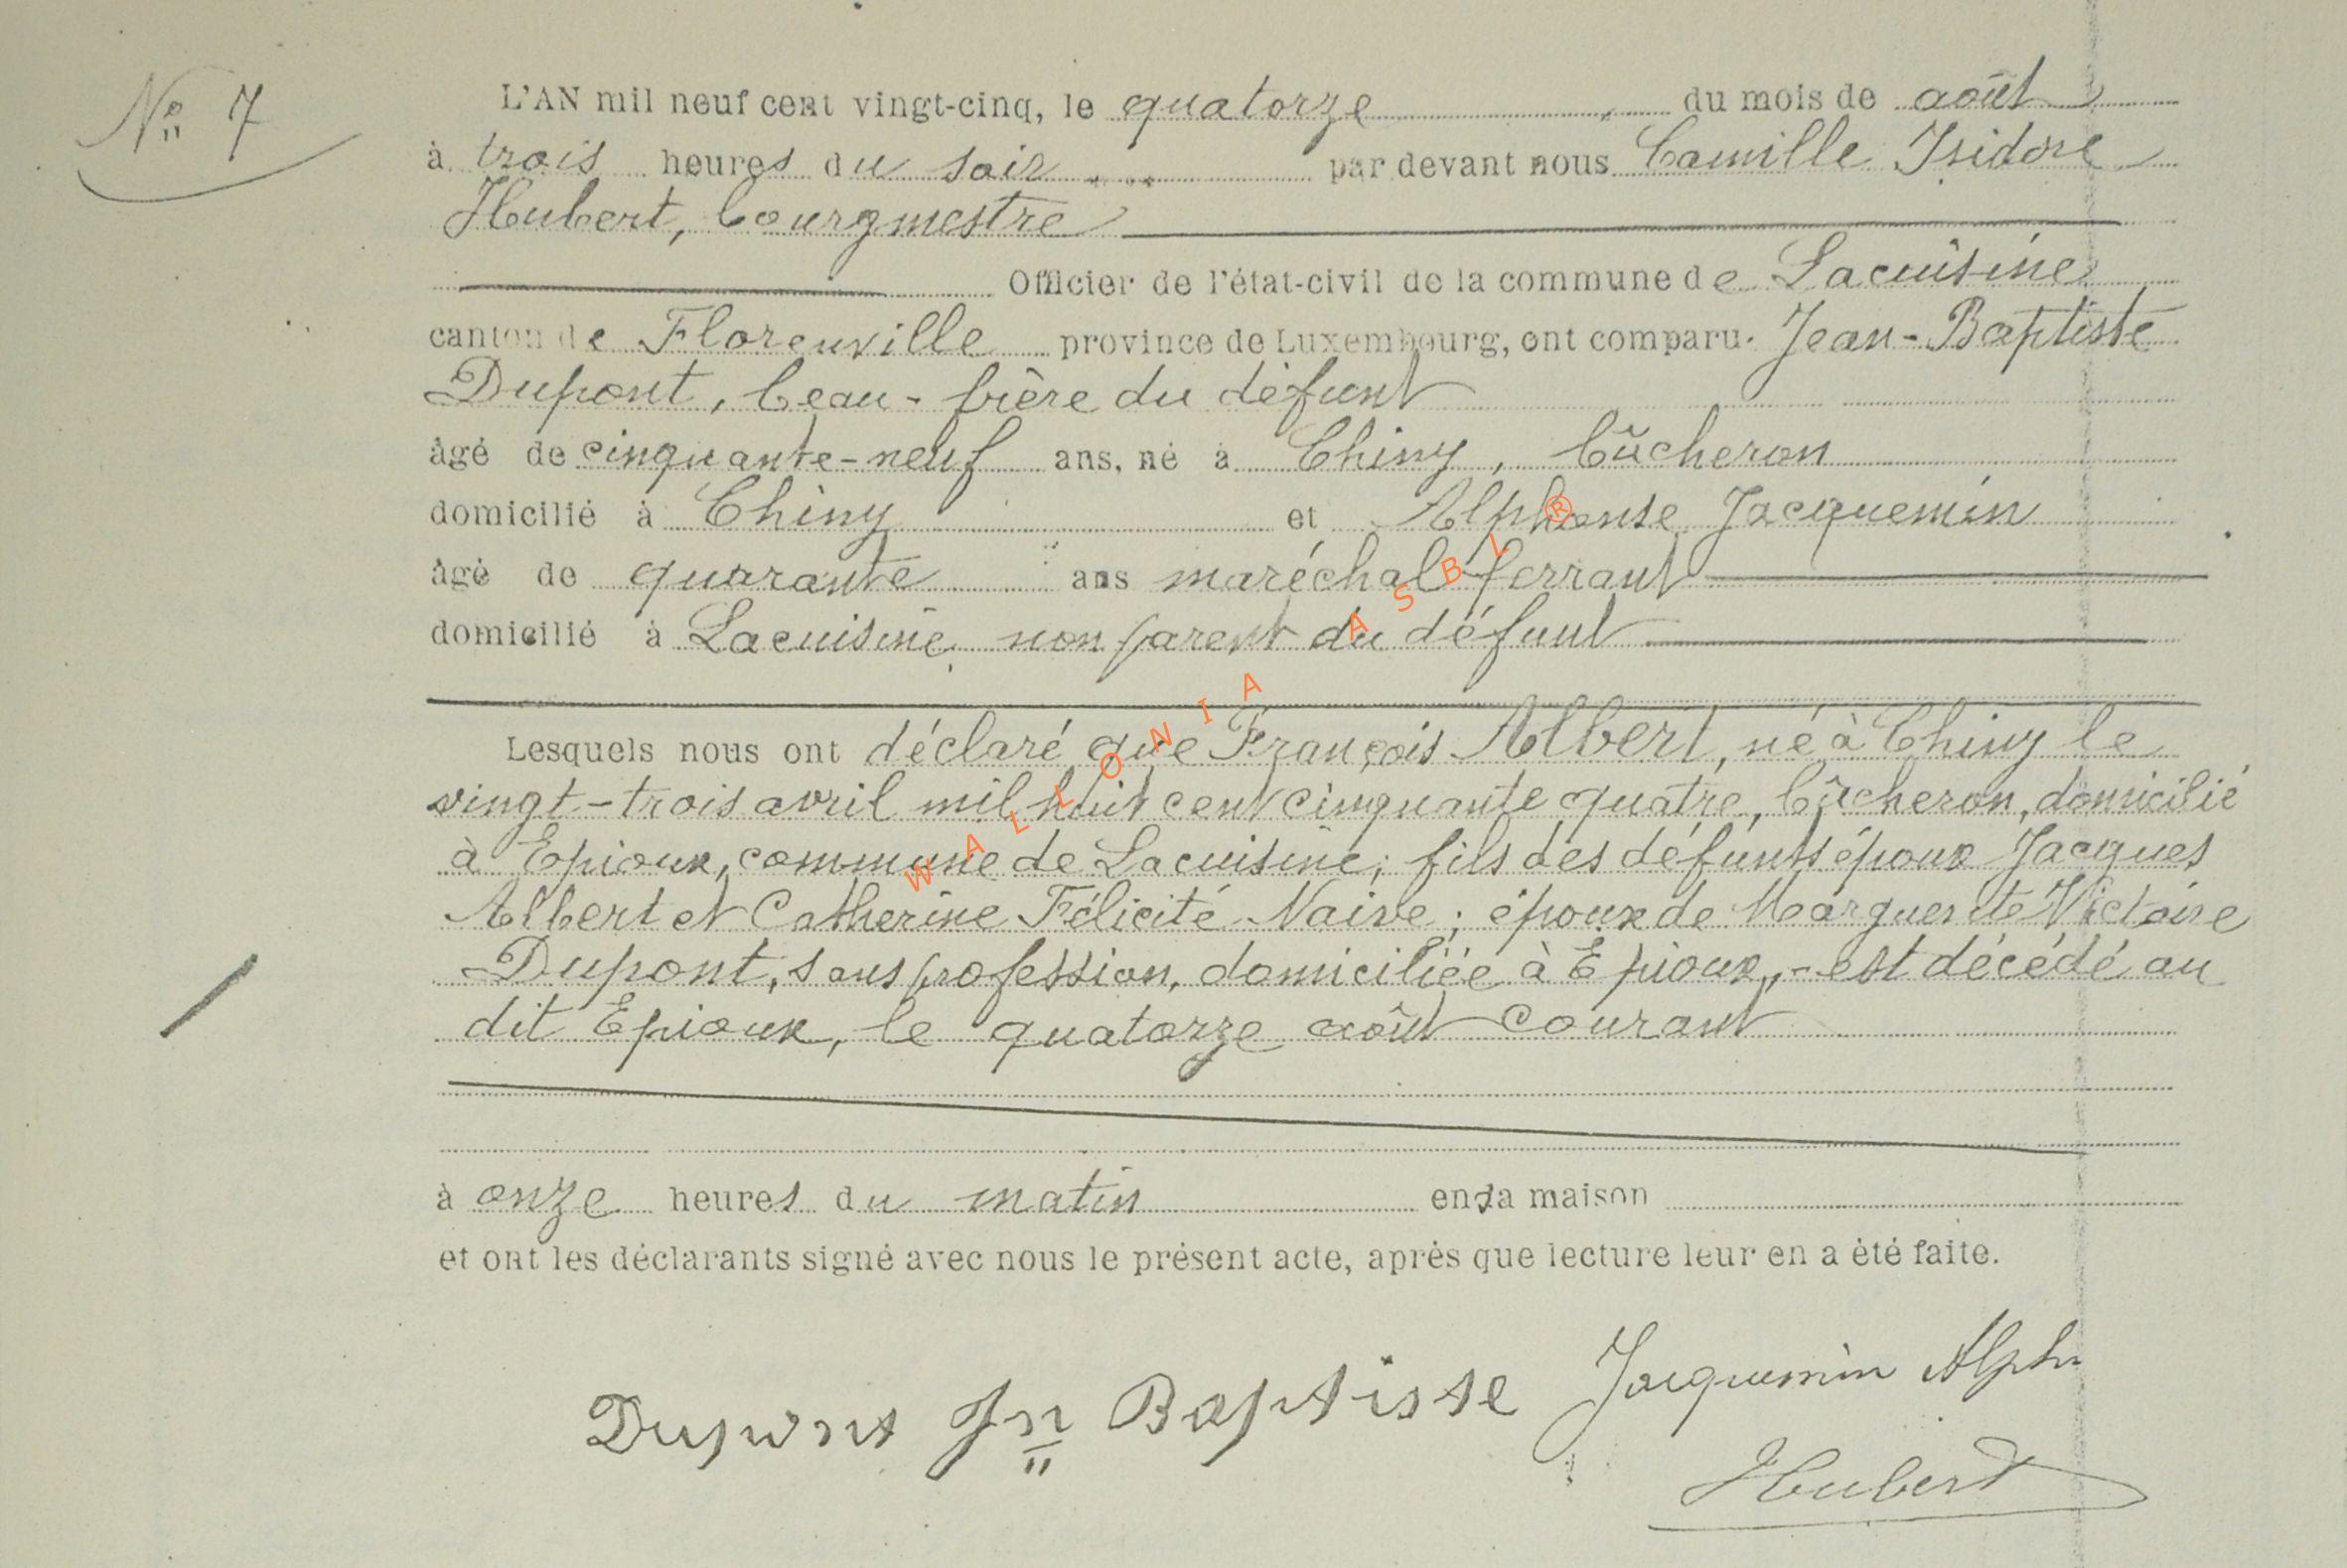 Nº 7
L'AN mil neuf cent vingt-cinq, le quatorze du mois de août
à trois heures du soir par devant nous Camille Isidore
Hubert, bourgmestre
Officier de l'état-civil de la commune de Lacuisine
canton de Florenville province de Luxembourg, ont comparu. Jean-Baptiste
Dupont, beau-frère du défunt
âgé de cinquante-neuf ans, né à Chiny, bûcheron
domicilié à Chiny et Alphonse Jacquemin
âgé de quarante ans maréchal ferrant
domicilié à Lacuisine, non parent du défunt
Lesquels nous ont déclaré que François Albert, né à Chiny le
vingt-trois avril mil huit cent cinquante quatre, bûcheron, domicilié
à Epioux, commune de Lacuisine; fils des défunts époux Jacques
Albert et Catherine Félicité Naive; époux de Marguerite Victoire
Dupont, sans profession, domiciliée à Epioux,- est décédé au
dit Epioux, le quatorze août courant
à onze heures du matin en sa maison
et ont les déclarants signé avec nous le présent acte, après que lecture leur en a été faite.
Dupont Jn Baptiste Jacquemin Alph
Hubert
WALLONIA ASBL ®